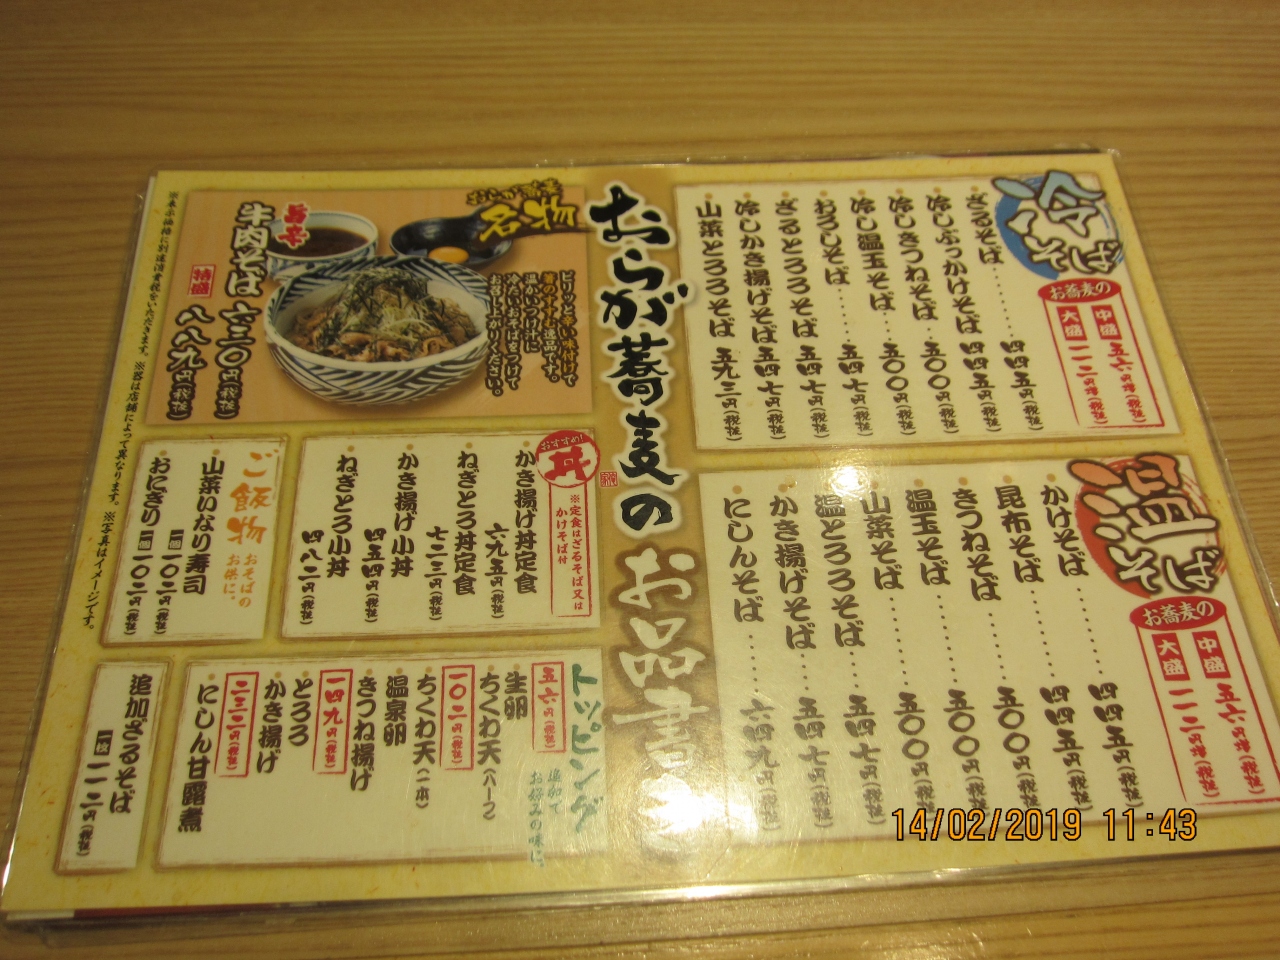 冷そば
お蕎麦の
中盛 五六円増(税抜)
大盛 一一二円増(税抜)
ざるそば……… 四四五円(税抜)
冷しぶっかけそば 四四五円(税抜)
冷しきつねそば 五〇〇円(税抜)
冷し温玉そば… 五〇〇円(税抜)
おろしそば…… 五四七円(税抜)
ざるとろろそば 五四七円(税抜)
冷しかき揚げそば 五四七円(税抜)
山菜とろろそば 五九三円(税抜)
温そば
お蕎麦の
中盛 五六円増(税抜)
大盛 一一二円増(税抜)
かけそば……… 四四五円(税抜)
昆布そば……… 四四五円(税抜)
きつねそば…… 五〇〇円(税抜)
温玉そば……… 五〇〇円(税抜)
山菜そば……… 五〇〇円(税抜)
温とろろそば… 五四七円(税抜)
かき揚げそば… 五四七円(税抜)
にしんそば…… 六四九円(税抜)
おらが蕎麦のお品書き
おらが蕎麦
名物
ピリッと辛い味付けで
箸のすすむ逸品です。
温かいつけ汁に
冷たいおそばをつけて
お召し上がりください。
旨辛
牛肉そば 六三〇円(税抜)
特盛 八八九円(税抜)
※表示価格に別途消費税をいただきます。 ※器は店舗によって異なります。 ※写真はイメージです。
おすすめ!
丼
※定食はざるそば又は
かけそば付
かき揚げ丼定食 六九五円(税抜)
ねぎとろ丼定食 七二三円(税抜)
かき揚げ小丼 四五四円(税抜)
ねぎとろ小丼 四八二円(税抜)
ご飯物
おそばの
お供に。
山菜いなり寿司 一個 一〇二円(税抜)
おにぎり 一個 一〇二円(税抜)
トッピング
追加で
お好みの味に。
五六円(税抜)
生卵
ちくわ天(ハーフ)
一〇二円(税抜)
ちくわ天(一本)
温泉卵
きつね揚げ
一四九円(税抜)
とろろ
かき揚げ
二三二円(税抜)
にしん甘露煮
追加ざるそば
一枚 二一二円(税抜)
14/02/2019 11:43